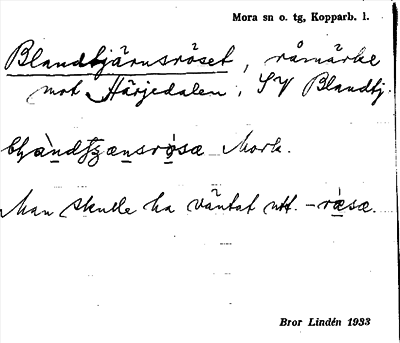 Mora sn o. tg, Kopparb. l.
Blandtjärnsröset, råmärke
mot Härjedalen, SV Blandtj.
Mora.
Man skulle ha väntat utt. -ræ̀sæ.
Bror Lindén 1933